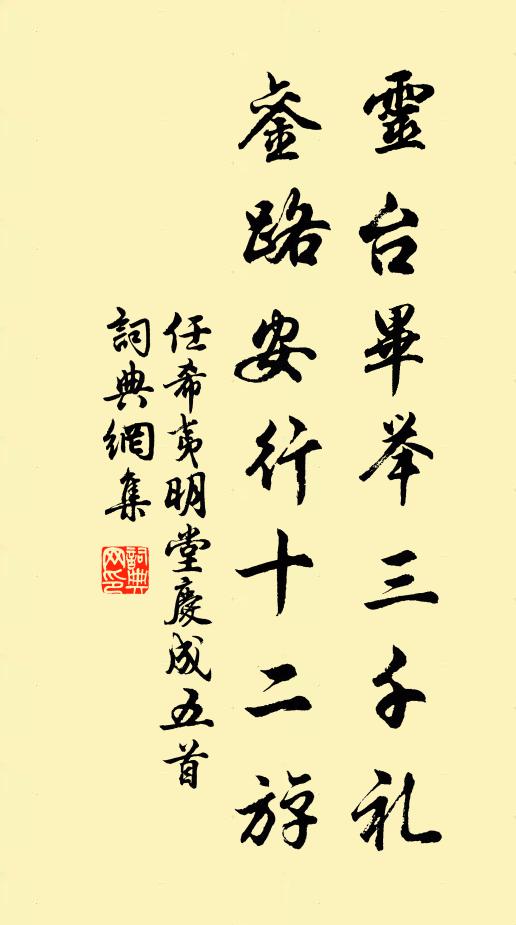 靈台畢举三千礼
銮路安行十二斿
任希夷明堂慶成五首
詞典網集
詞典
网印